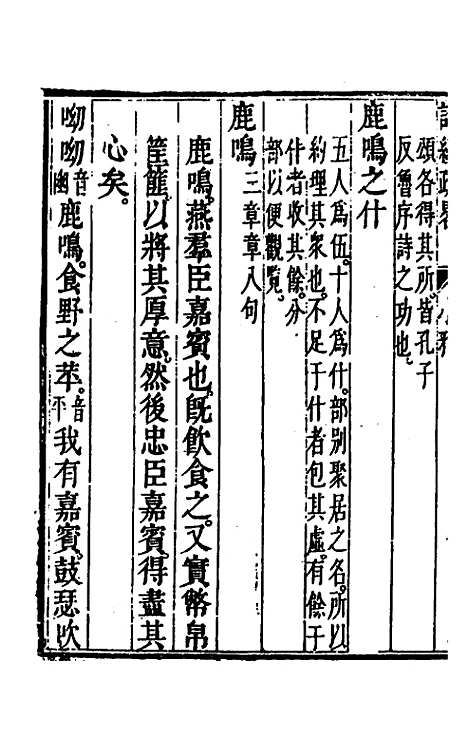 頌各得其所皆孔子
反魯序詩之功也
鹿鳴之什
五人爲伍十人爲什部別聚居之名所以
約理其衆也不足于什者包其虛有餘于
什者收其餘分
部以便觀覽
鹿鳴三章章八句
鹿鳴燕羣臣嘉賓也旣飮食之又實幣帛
筐篚以將其厚意然後忠臣嘉賓得盡其
心矣
呦呦音幽鹿鳴食野之苹音平我有嘉賓鼓瑟吹